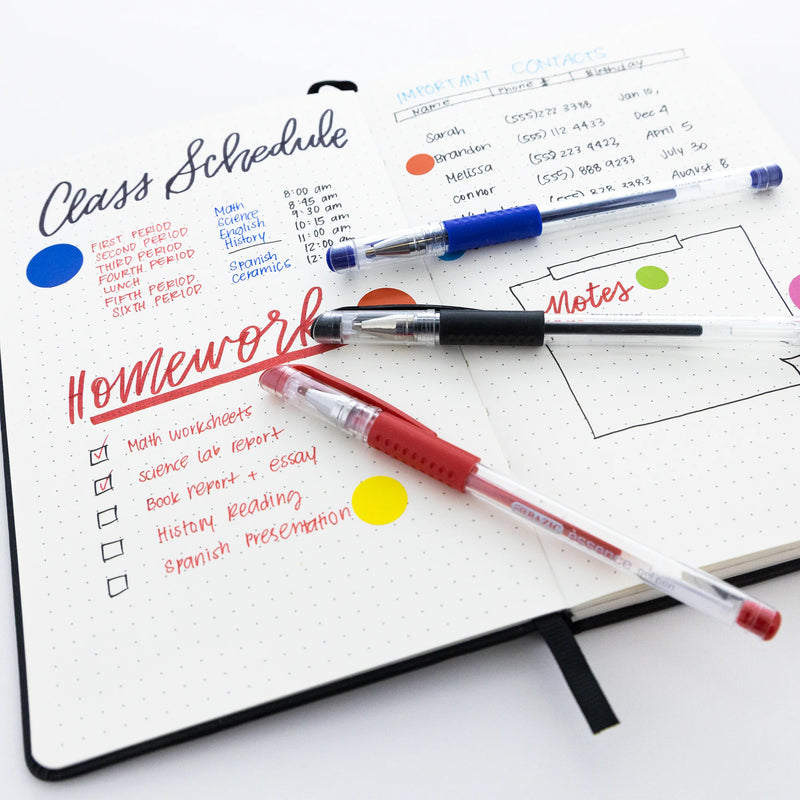 Class Schedule
FIRST PERIOD
SECOND PERIOD
THIRD PERIOD
FOURTH PERIOD
LUNCH
FIFTH PERIOD
SIXTH PERIOD
Math
Science
English
History
Spanish
Ceramics
8:00 am
8:45 am
9:30 am
10:15 am
11:00 am
12:00
12:
Homework
Math worksheets
science lab report
Book report + essay
History Reading
Spanish Presentation
IMPORTANT CONTACTS
Name Phone # Birthday
Sarah (555)222 3388 Jan 10,
Brandon (555) 112 4433 Dec 4
Melissa (555) 223 4422 April 5
connor (555) 888 9233 July 30
August 8
Notes
BAZIC essence gel pen